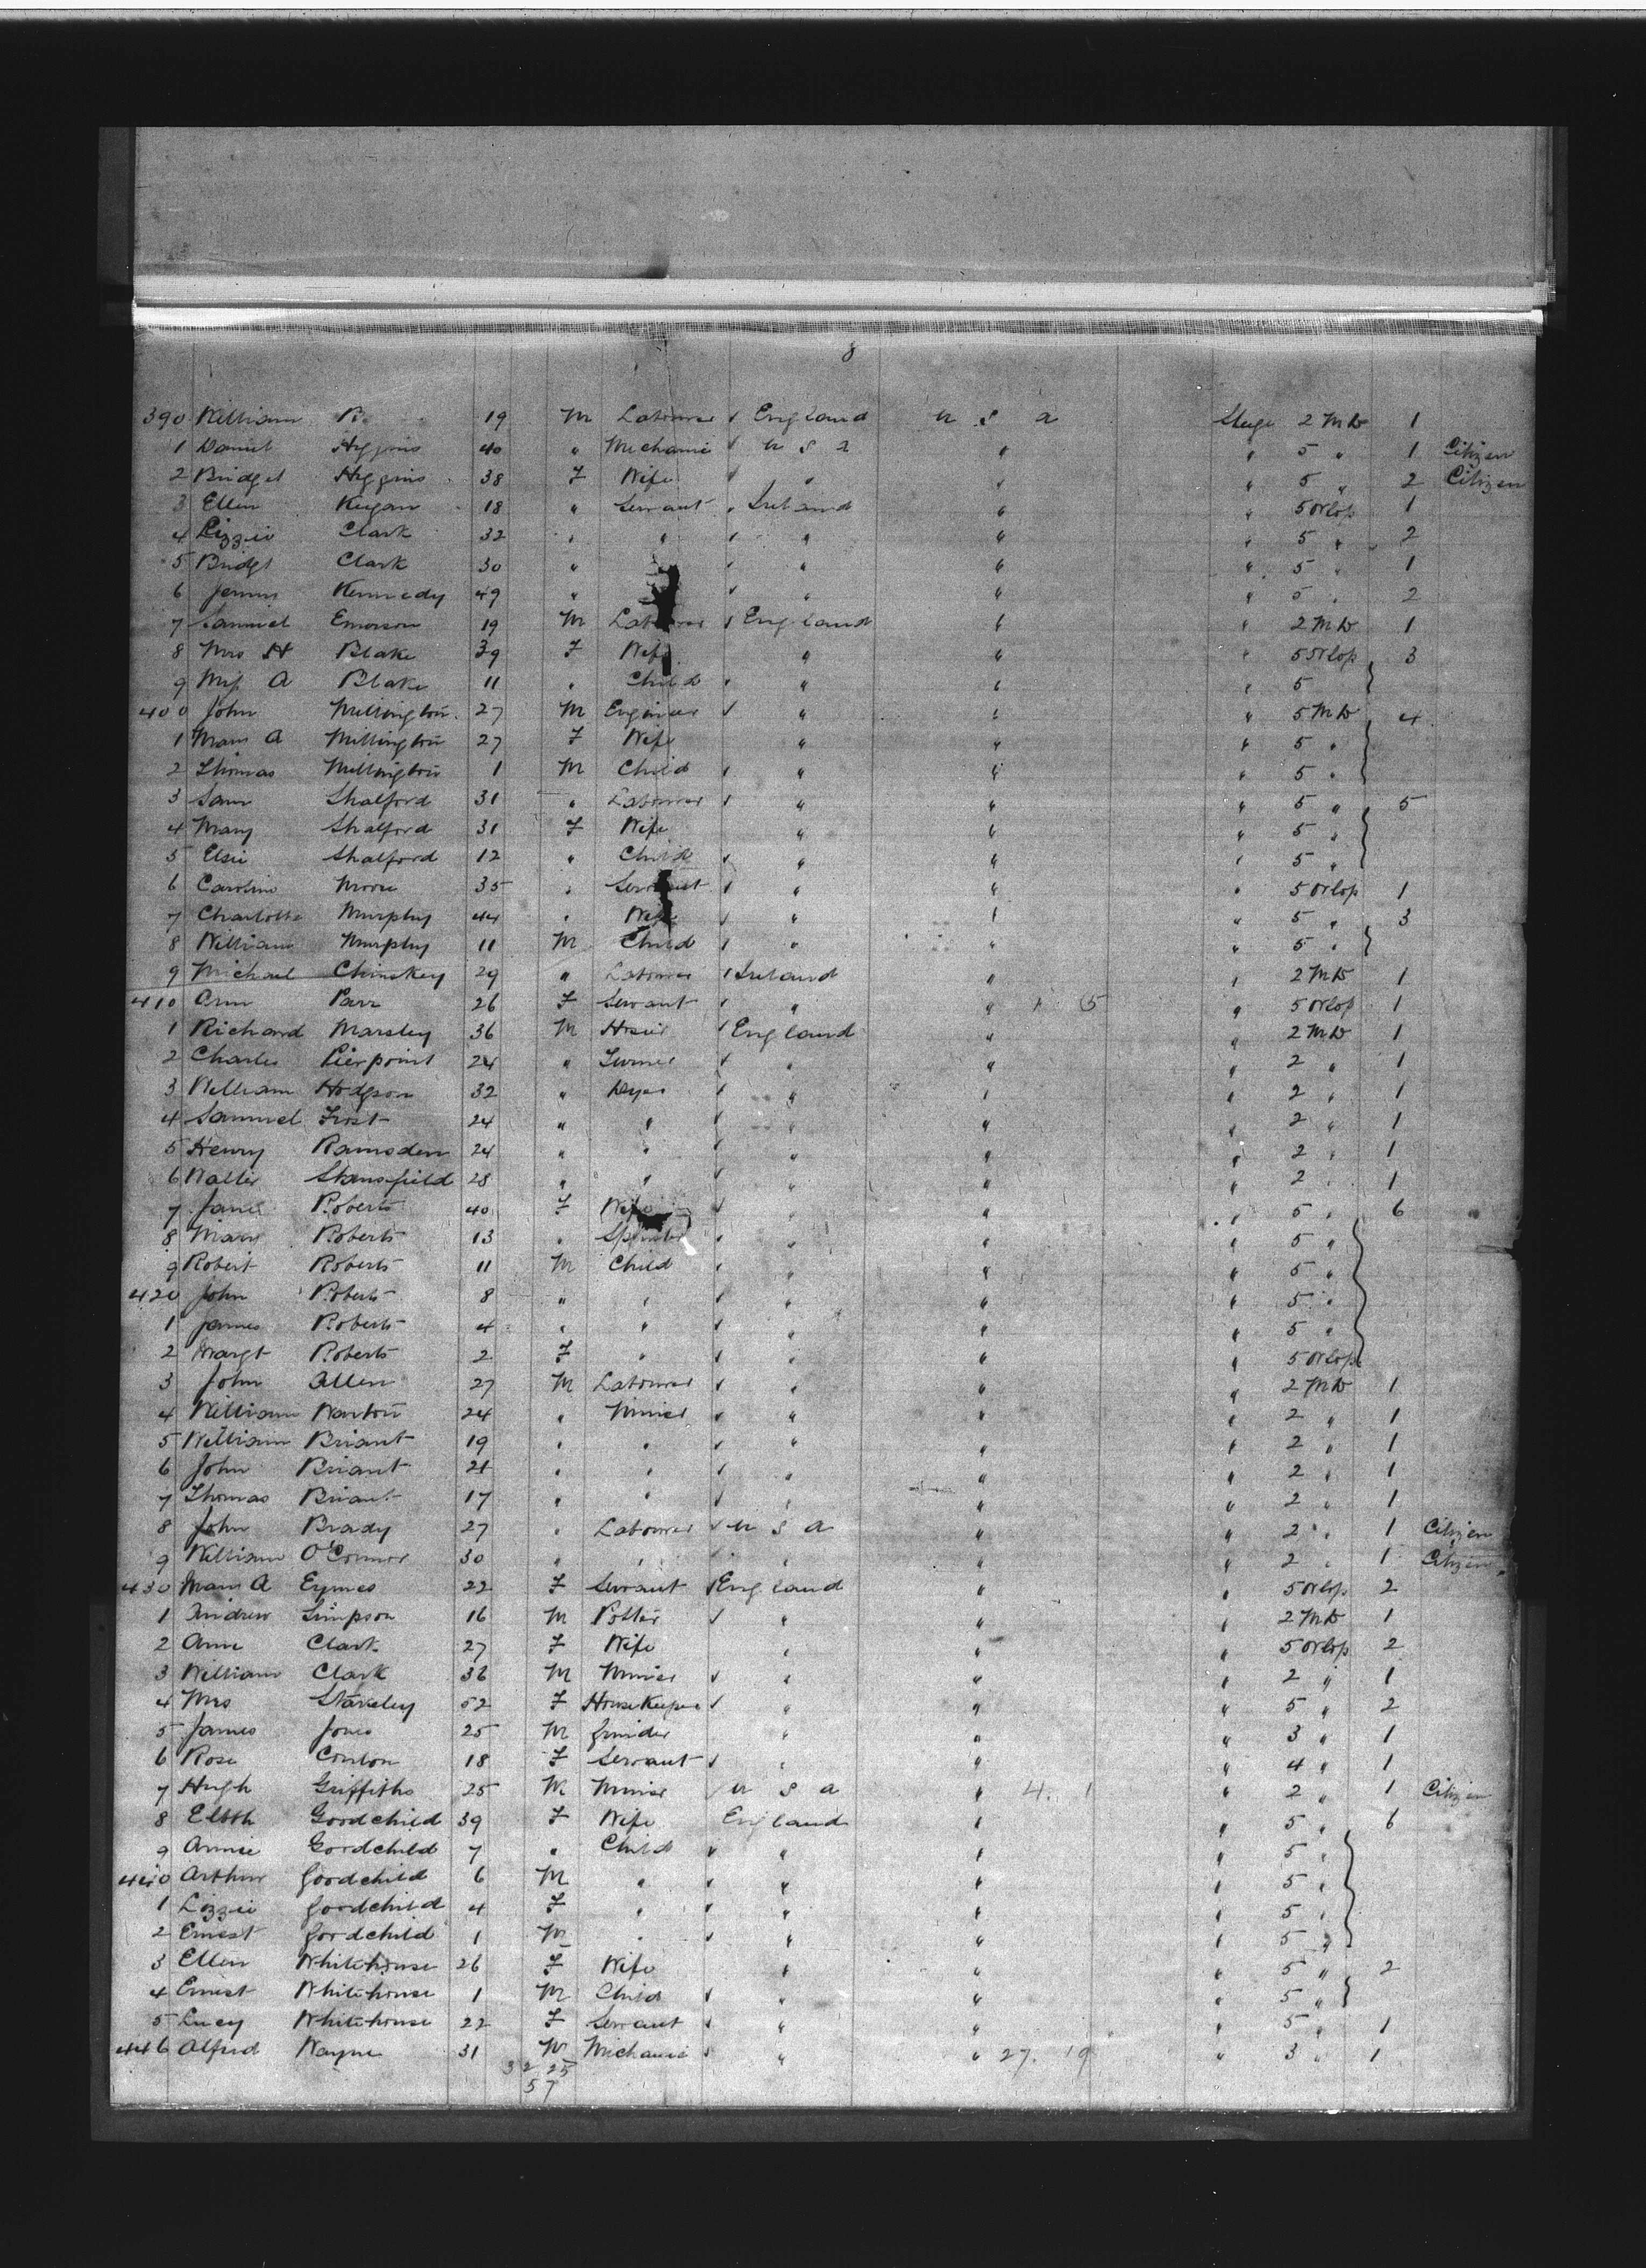 8
390 William 19 M Labourer England U S A Stage 2 M D 1
1 Daniel Higgins 40 " Mechanic U S A " " 5 " 1 Citizen
2 Bridget Higgins 38 F Wife " " " 5 " 2 Citizen
3 Ellen Keegan 18 " Servant Ireland " " 5 Orlop 1
4 Lizzie Clark 32 " " " " " 5 " 2
5 Bridgt Clark 30 " " " " 5 " 1
6 Kennedy 49 " " " " 5 " 2
7 Samuel Emerson 19 M Labourer England " " 2 M D 1
8 Mrs H Blake 39 F Wife " " " 5 Orlop 3
9 Miss A Blake 11 " Child " " " 5
400 John Millington 27 M Engineer " " " 5 M D 4
1 Mary A Millington 27 F Wife " " " 5 "
2 Thomas Millington 1 M Child " " " 5 "
3 Sam Shalford 31 " Labourer " " " 5 " 5
4 Mary Shalford 31 F Wife " " " 5 "
5 Elsie Shalford 12 " Child " " " 5 "
6 Caroline Moore 35 " Servant " " " 5 Orlop 1
7 Charlotte Murphy 44 " Wife " " " 5 " 3
8 William Murphy 11 M Child " " " 5 "
9 Michael Chinskey 29 " Labourer Ireland " " 2 M D 1
410 Ann Parr 26 F Servant " " 1 5 " 5 Orlop 1
1 Richard Marsley 36 M Hosier England " " 2 M D 1
2 Charles Pierpoint 24 " Turner " " " 2 " 1
3 William Hodgson 32 " Dyer " " " 2 " 1
4 Samuel Frost 24 " " " " " 2 " 1
5 Henry Ramsden 24 " " " " " 2 " 1
6 Walter Stansfield 28 " " " " " 2 " 1
7 Jane Roberts 40 F Wife " " " 5 " 6
8 Mary Roberts 13 " Spinster " " " 5 "
9 Robert Roberts 11 M Child " " " 5 "
420 John Roberts 8 " " " " " 5 "
1 James Roberts 4 " " " " " 5 "
2 Margt Roberts 2 F " " " " 5 Orlop
3 John Allen 27 M Labourer " " " 2 M D 1
4 William Warton 24 " Miner " " " 2 " 1
5 William Briant 19 " " " " " 2 " 1
6 John Briant 21 " " " " " 2 " 1
7 Thomas Briant 17 " " " " " 2 " 1
8 John Brady 27 " Labourer U S A " " 2 " 1 Citizen
9 William O'Connor 30 " " " " " 2 " 1 Citizen
430 Mary A Eymes 22 F Servant England " " 5 Orlop 2
1 Andrew Simpson 16 M Potter " " " 2 M D 1
2 Ann Clark 27 F Wife " " " 5 Orlop 2
3 William Clark 36 M Miner " " " 2 " 1
4 Mrs Staveley 52 F House Keeper " " " 5 " 2
5 James Jones 25 M Grinder " " " 3 " 1
6 Rose Conlon 18 F Servant " " " 4 " 1
7 Hugh Griffiths 25 M Miner U S A " 4. 1 " 2 " 1 Citizen
8 Elbth Goodchild 39 F Wife England " " 5 " 6
9 Annie Goodchild 7 " Child " " " 5 "
440 Arthur Goodchild 6 M " " " " 5 "
1 Lizzie Goodchild 4 F " " " " 5 "
2 Ernest Goodchild 1 M " " " " 5 "
3 Ellen Whitehouse 26 F Wife " " " 5 " 2
4 Ernest Whitehouse 1 M Child " " " 5 "
5 Lucy Whitehouse 22 F Servant " " " 5 " 1
446 Alfred Wayne 31 M Mechanic " " 27. 19 " 3 " 1
32 25
57